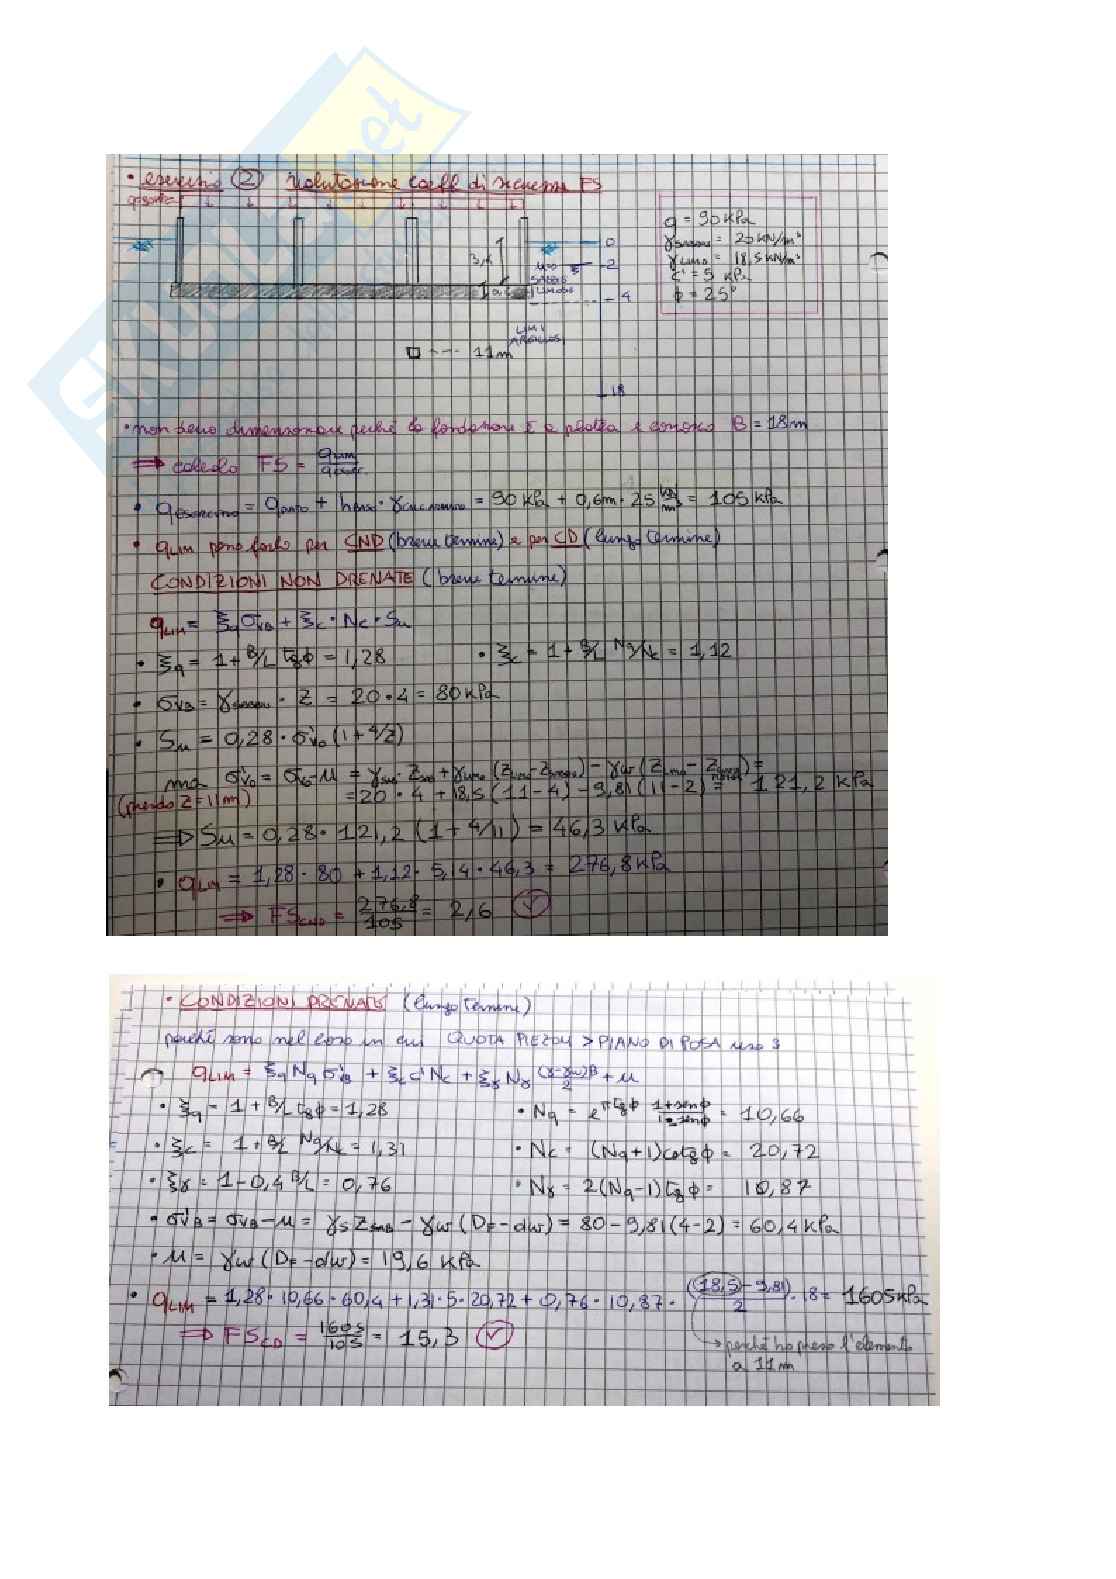 SKUOLA.net
• esercizio ② valutazione coeff di sicurezza FS
q = 90 kPa
γsabbia = 20 kN/m³
γlimo = 18,5 kN/m³
c' = 5 kPa
ϕ = 25°
0
3,4
-2
LIMOSE
-4
LIMI
ARGILLOSI
11m
-18
• non devo dimensionare perché la fondazione è a platea e conosco B = 18m
⇒ calcolo FS = qLIM/qeserc
• qesercizio = qcarico + hbase · γcalcestruzzo = 90 kPa + 0,6m · 25 kN/m³ = 105 kPa
• qLIM posso farlo per CND (breve termine) e per CD (lungo termine)
CONDIZIONI NON DRENATE (breve termine)
qLIM = ξq σVB + ξc · Nc · Su
• ξq = 1 + B/L tgϕ = 1,28 • ξc = 1 + B/L Nq/Nc = 1,12
• σVB = γsabbia · z = 20 · 4 = 80 kPa
• Su = 0,28 · σ'v0 (1 + 4/z)
ma σ'v0 = σv0 - u = γsab · zsab + γlimo (zlimo - zsabbia) - γw (zlimo - zfalda) =
(prendo z = 11m) = 20 · 4 + 18,5 (11 - 4) - 9,81 (11 - 2) = 121,2 kPa
⇒ Su = 0,28 · 121,2 (1 + 4/11) = 46,3 kPa
• qLIM = 1,28 · 80 + 1,12 · 5,14 · 46,3 = 276,8 kPa
⇒ FSCND = 276,8/105 = 2,6 ✓
• CONDIZIONI DRENATE (lungo termine)
perché sono nel caso in cui QUOTA PIEZOM > PIANO DI POSA uso 3
qLIM = ξq Nq σ'VB + ξc c' Nc + ξγ Nγ (γ-γw)B/2 + u
• ξq = 1 + B/L tgϕ = 1,28 • Nq = e^πtgϕ 1+senϕ/1-senϕ = 10,66
• ξc = 1 + B/L Nq/Nc = 1,31 • Nc = (Nq+1)cotgϕ = 20,72
• ξγ = 1 - 0,4 B/L = 0,76 • Nγ = 2(Nq-1)tgϕ = 10,87
• σ'VB = σVB - u = γs zsab - γw (DF - dw) = 80 - 9,81(4-2) = 60,4 kPa
• u = γw (DF - dw) = 19,6 kPa
• qLIM = 1,28 · 10,66 · 60,4 + 1,31 · 5 · 20,72 + 0,76 · 10,87 · (18,5 - 9,81)/2 · 18 = 1605 kPa
⇒ FSCD = 1605/105 = 15,3 ✓
→ perché ho preso l'elemento
a 11m